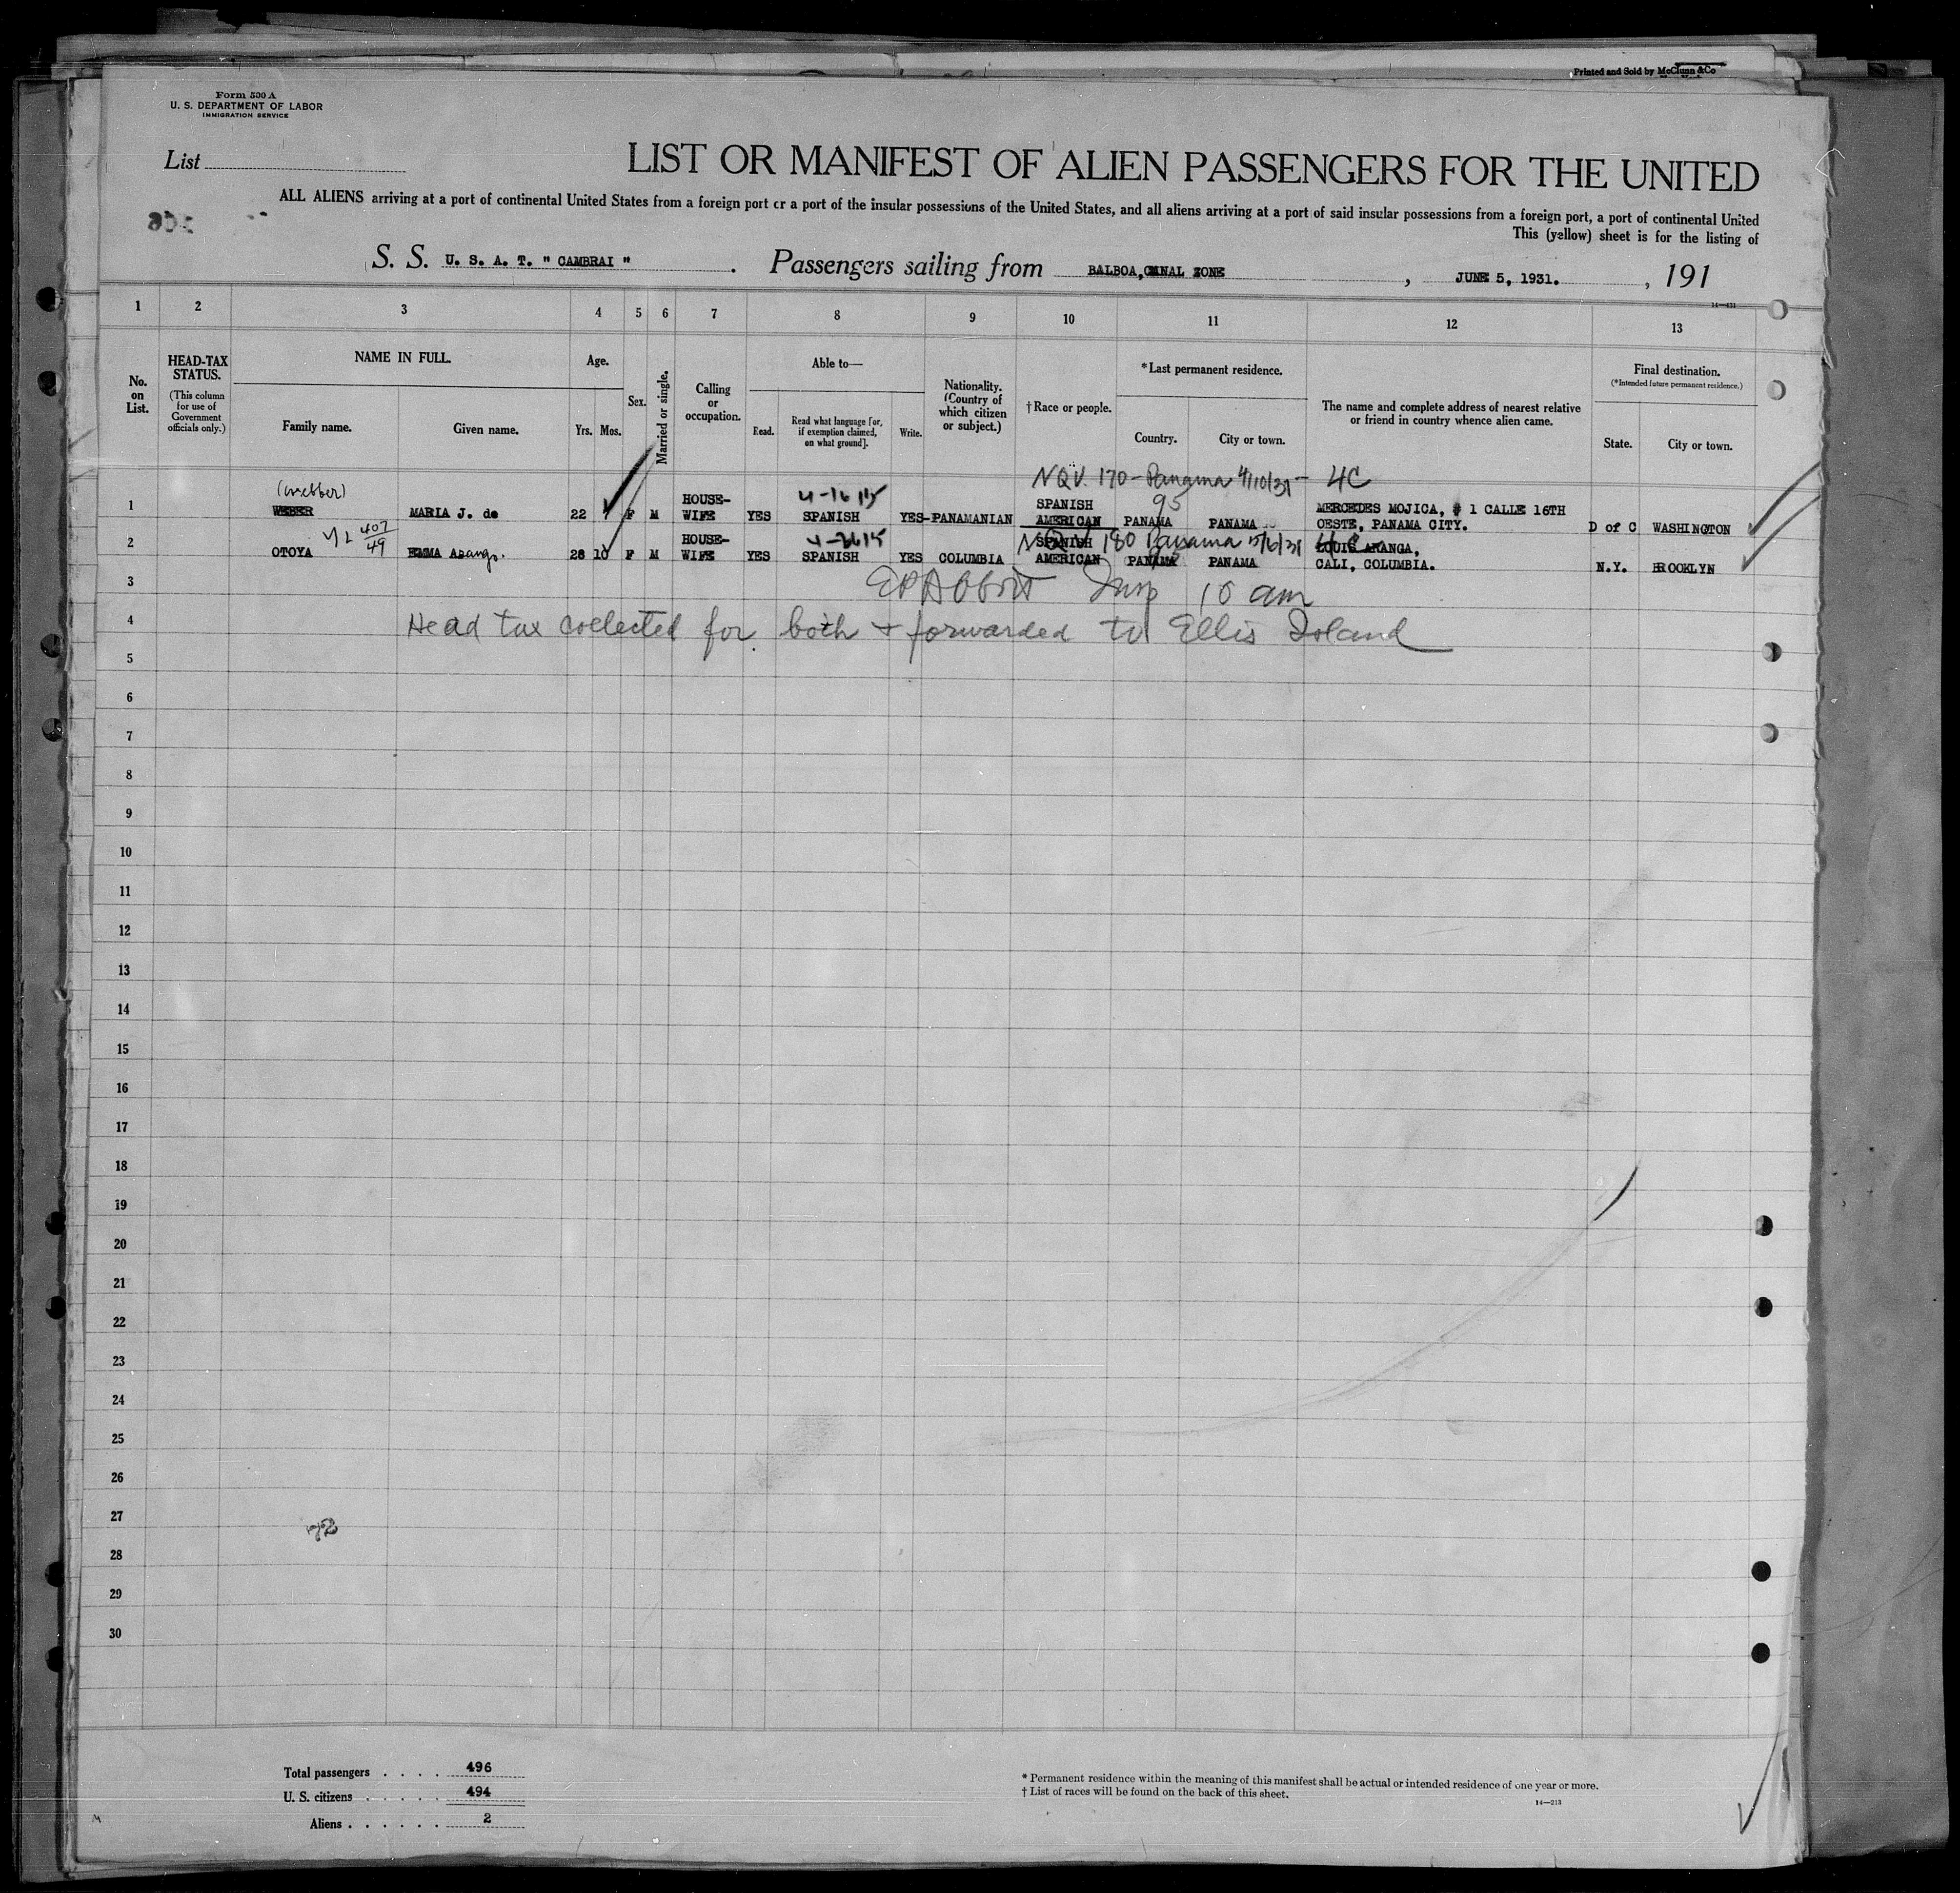 Printed and Sold by McClunn & Co
Form 500 A
U. S. DEPARTMENT OF LABOR
IMMIGRATION SERVICE
List
LIST OR MANIFEST OF ALIEN PASSENGERS FOR THE UNITED
ALL ALIENS arriving at a port of continental United States from a foreign port or a port of the insular possessions of the United States, and all aliens arriving at a port of said insular possessions from a foreign port, a port of continental United
This (yellow) sheet is for the listing of
S. S. U. S. A. T. " CAMBRAI " . Passengers sailing from BALBOA, CANAL ZONE , JUNE 5, 1931. , 191
14—431
1 2 3 4 5 6 7 8 9 10 11 12 13
No. on List.
HEAD-TAX STATUS.
(This column for use of Government officials only.)
NAME IN FULL.
Family name. Given name.
Age.
Yrs. Mos.
Sex.
Married or single.
Calling or occupation.
Able to—
Read. Read what language [or, if exemption claimed, on what ground]. Write.
Nationality. (Country of which citizen or subject.)
†Race or people.
*Last permanent residence.
Country. City or town.
The name and complete address of nearest relative or friend in country whence alien came.
Final destination.
(*Intended future permanent residence.)
State. City or town.
NQV. 170 - Panama 4/10/31 - 4C
(Webber) 95
1 WEBER MARIA J. de 22 F M HOUSE-WIFE YES SPANISH YES PANAMANIAN SPANISH AMERICAN PANAMA PANAMA MERCEDES MOJICA, # 1 CALLE 16TH OESTE, PANAMA CITY. D of C WASHINGTON
407
49
180 Panama
2 OTOYA EMMA Arango. 28 10 F M HOUSE-WIFE YES SPANISH YES COLUMBIA SPANISH AMERICAN PANAMA PANAMA LOUIS ARANGA, CALI, COLUMBIA. N.Y. BROOKLYN
3 E P Abbott Insp 10 am
4 Head tax collected for both + forwarded to Ellis Island
5
6
7
8
9
10
11
12
13
14
15
16
17
18
19
20
21
22
23
24
25
26
27
28
29
30
Total passengers . . . . 496
U. S. citizens . . . . . 494
Aliens . . . . . . 2
* Permanent residence within the meaning of this manifest shall be actual or intended residence of one year or more.
† List of races will be found on the back of this sheet.
14—213